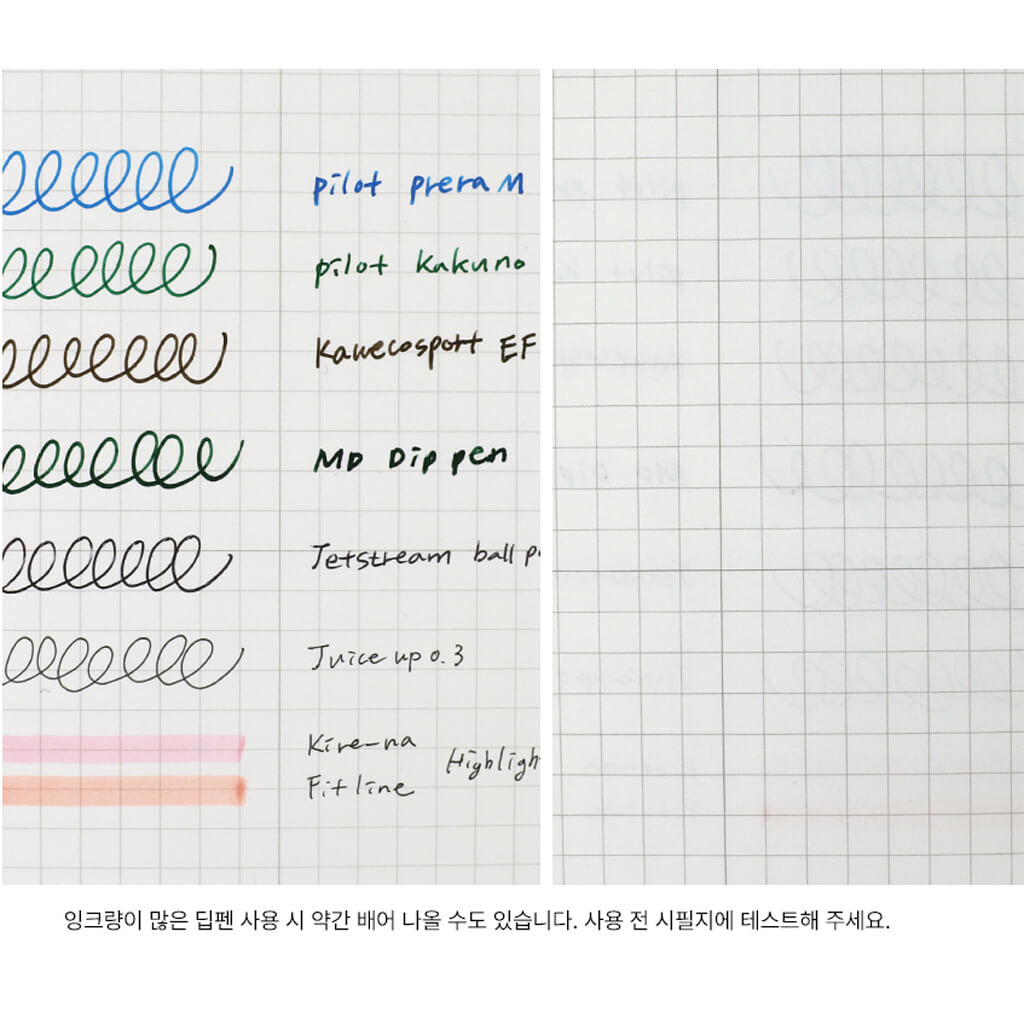 pilot prera M
pilot kakuno
Kawecosport EF
MD Dip pen
Jetstream ball
Juice up 0.3
Kire-na
Fitline
잉크량이 많은 딥펜 사용 시 약간 배어 나올 수도 있습니다. 사용 전 시필지에 테스트해 주세요.